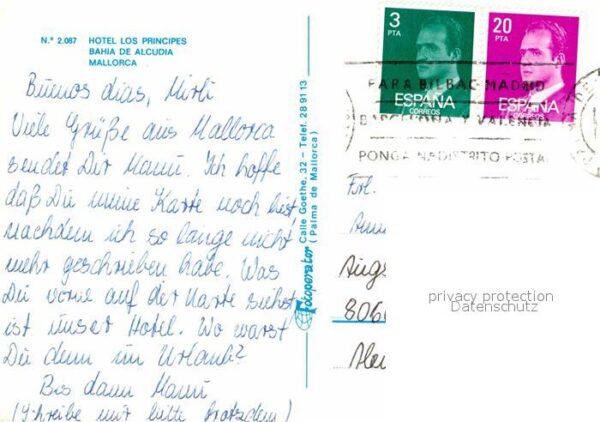 N.º 2.087 HOTEL LOS PRINCIPES
BAHIA DE ALCUDIA
MALLORCA
Buenos dias, Mirli
Viele Grüße aus Mallorca
sendet Dir Manu. Ich hoffe
daß Du meine Karte noch liest
nachdem ich so lange nicht
mehr geschrieben habe. Was
Du vorne auf der Karte siehst
ist unser Hotel. Wo warst
Du denn im Urlaub?
Bis dann Manu
(Schreibe mir bitte trotzdem)
Fotoperator Calle Goethe, 32 – Telef. 28 91 13
(Palma de Mallorca)
3
PTA
ESPAÑA
CORREOS
20
PTA
ESPAÑA
CORREOS
PARA BILBAO MADRID
BARCELONA Y VALENCIA
PONGA DISTRITO POSTAL
Frl.
Augs
806
privacy protection
Datenschutz